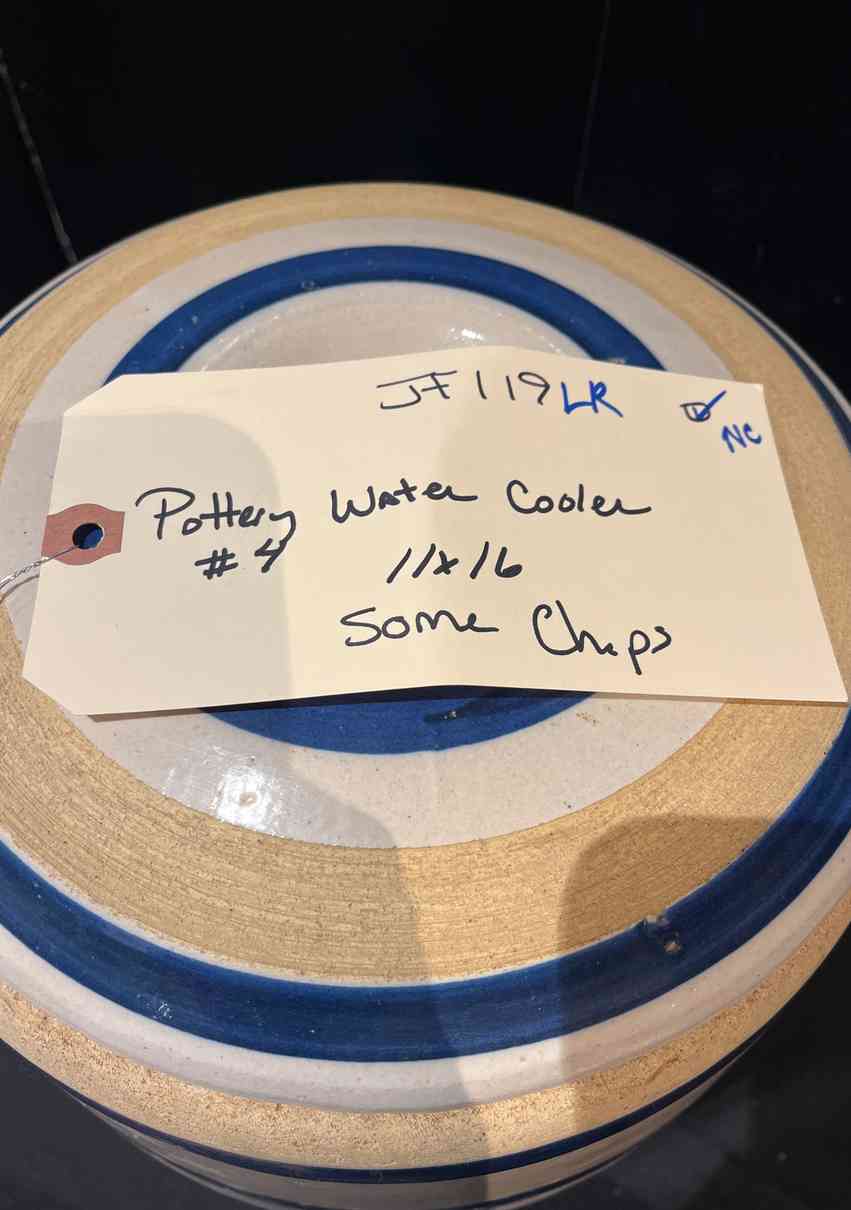 JF119 LR
NC
Pottery Water Cooler
#4 11x16
Some Chips